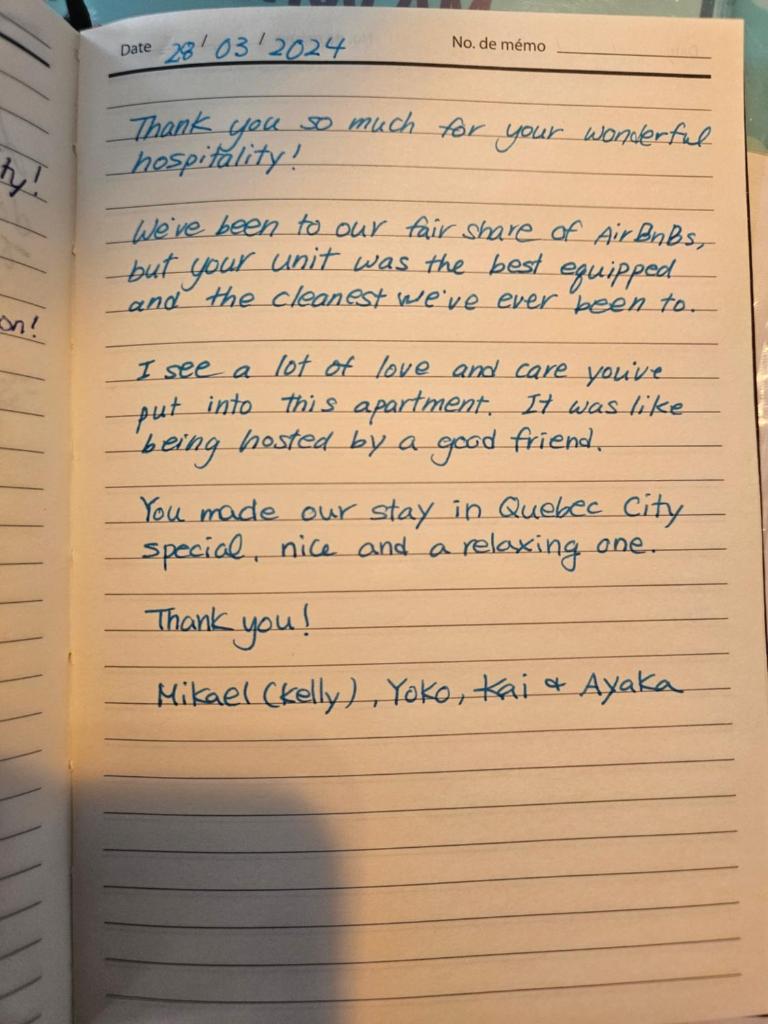 hy!
on!
Date 28/03/2024 No. de mémo
Thank you so much for your wonderful
hospitality!
We've been to our fair share of AirBnBs,
but your unit was the best equipped
and the cleanest we've ever been to.
I see a lot of love and care you've
put into this apartment. It was like
being hosted by a good friend.
You made our stay in Quebec City
special, nice and a relaxing one.
Thank you!
Mikael (Kelly), Yoko, Kai & Ayaka